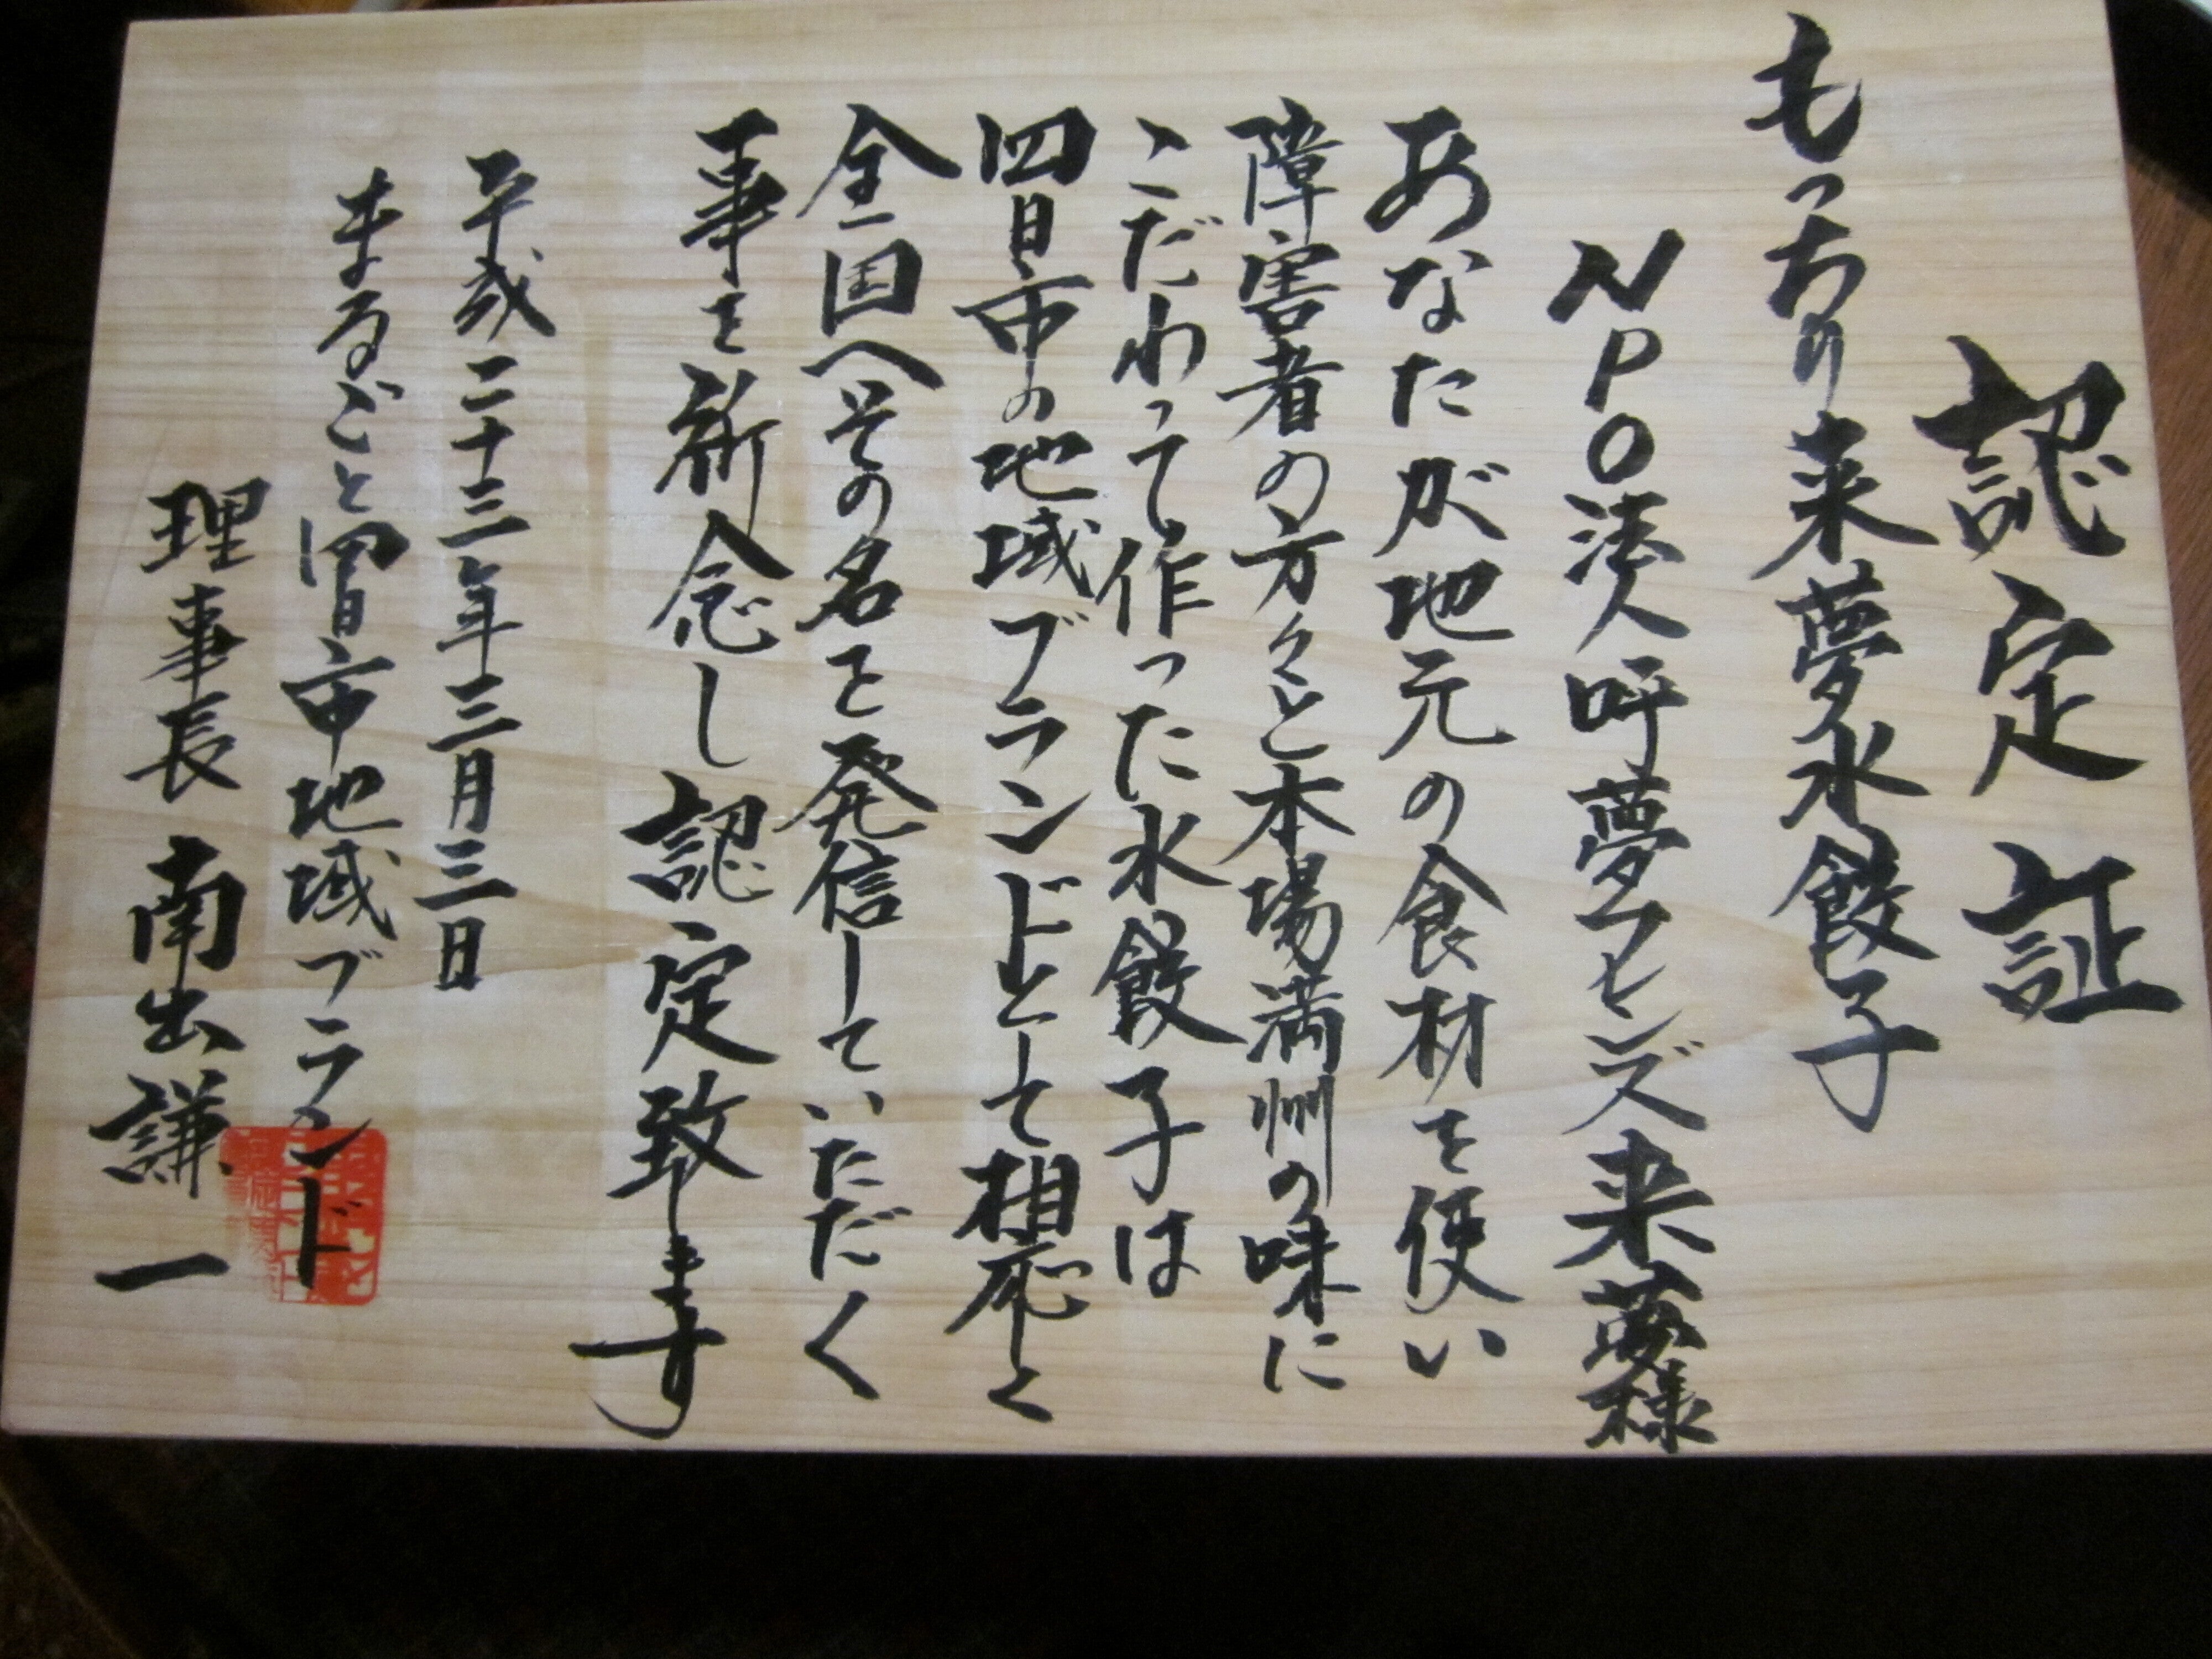 認定証
もっちり来夢水餃子
NPO法人呼夢フレンズ来夢様
あなたが地元の食材を使い
障害者の方々と本場満州の味に
こだわって作った水餃子は
四日市の地域ブランドとして相応しく
全国へその名を発信していただく
事を祈念し認定致します
平成二十三年三月三日
まるごと四日市地域ブランド
理事長 南出謙一